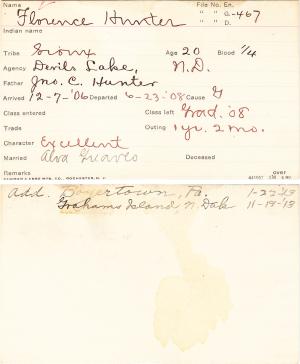 Name File No. En.
Florence Hunter " " G. -467
Indian name " " D.
Tribe Sioux Age 20 Blood 1/4
Agency Devils Lake, N.D.
Father Jno. C. Hunter
Arrived 12-7-'06 Departed 6-23-'08 Cause G
Class entered Class left Grad. '08
Trade Outing 1 yr. 2 mo.
Character Excellent
Married Alva Deceased
Remarks OVER
Add. Boyertown, Pa. 1-22-13
Grahams Island, N. Dak 11-19-13